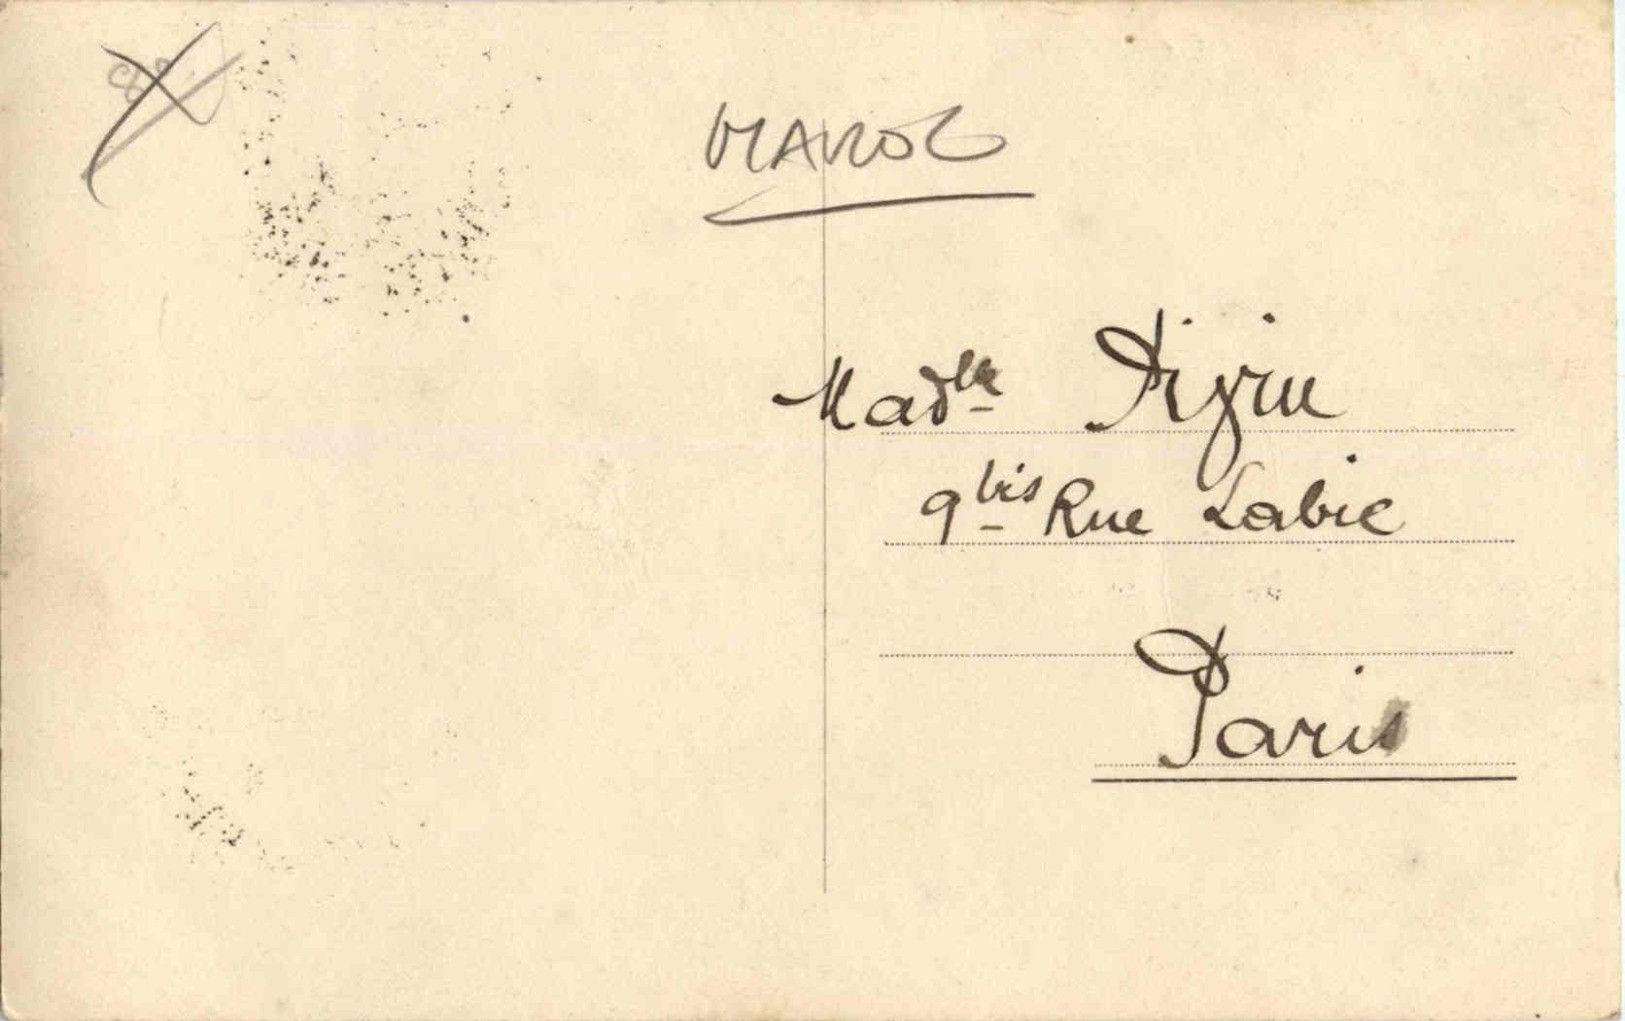 MAROC
Madlle
9 bis Rue Labie
Paris